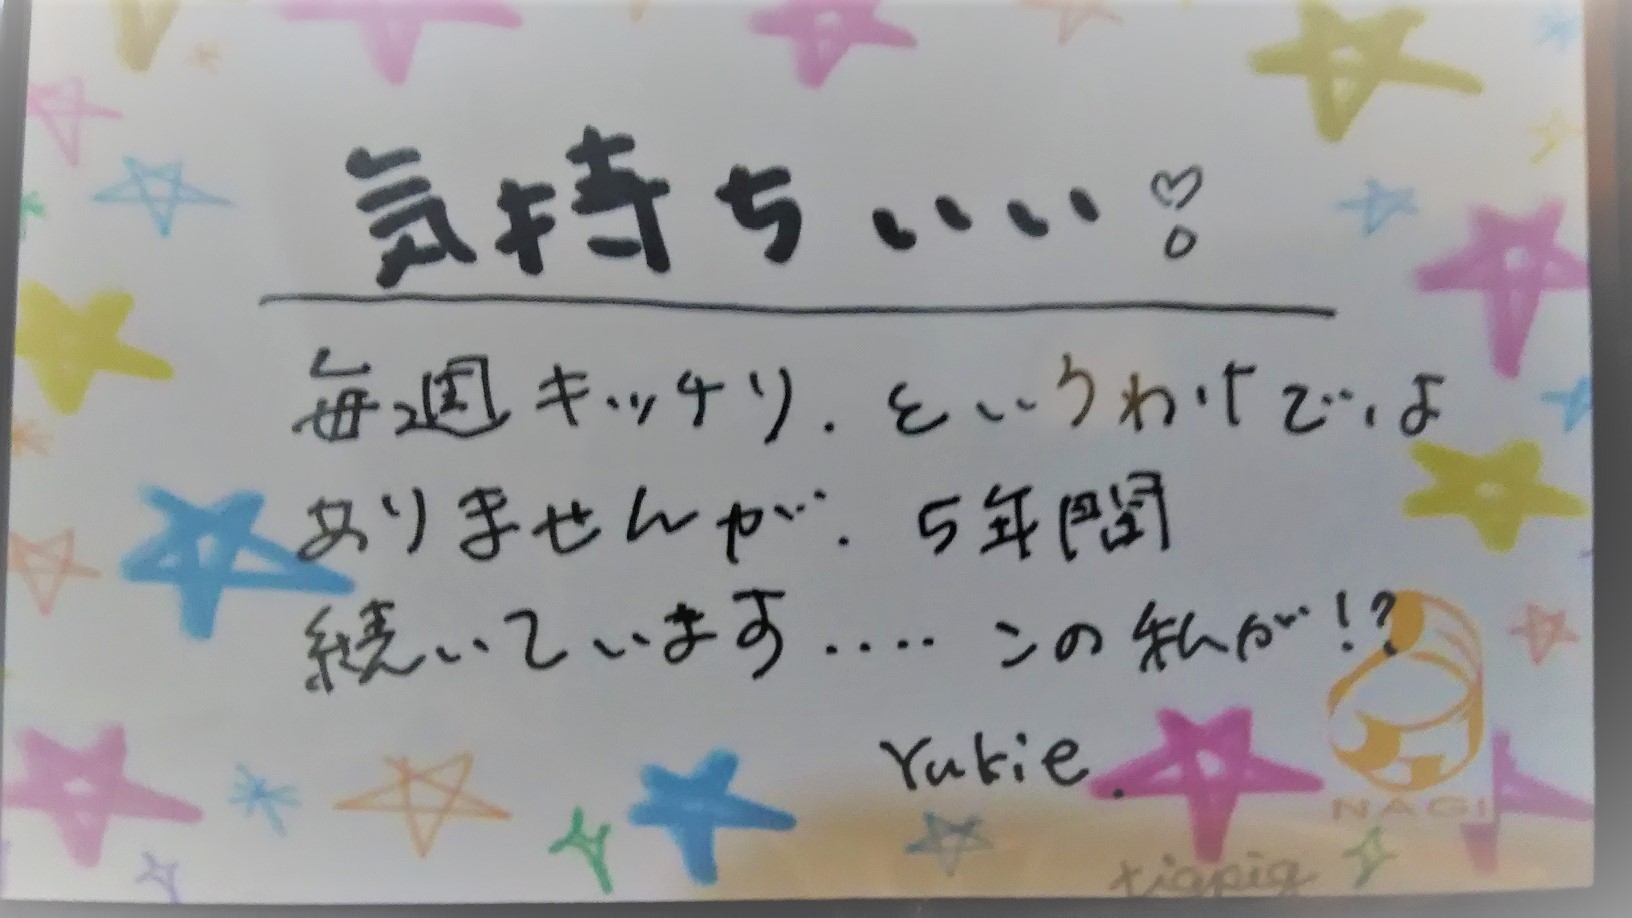 気持ちいい♡
毎週キッチリ.というわけでは
ありませんが.5年間
続いています....この私が!?
Yukie.
NAGI